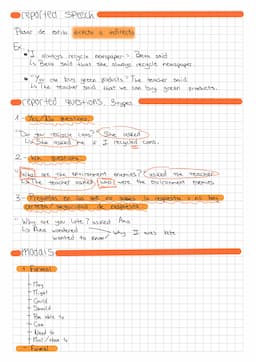 reported speech
Pasar de estilo directo a indirecto
Ex:
"I always recycle newspaper" Beth said
↳ Beth said that she always recycle newspaper
"You can buy green products." The teacher said
↳ The teacher said that we can buy green products.
reported questions. 3 types
1 - Yes/No questions.
"Do you recycle cans?" She asked
↳ She asked me if I recycled cans.
2 - Wh questions
What are the environment enemies? asked the teacher
↳ The teacher asked who were the environment enemies
3 - Preguntas en las que no sabes la respuesta o no hay
seguridad de respuesta
Why are you late? asked Ana
↳ Ana wondered why I was late
wanted to know
modals
+ Formal
May
Might
Could
Should
Be able to
Can
Need to
Must / Have to
- Formal